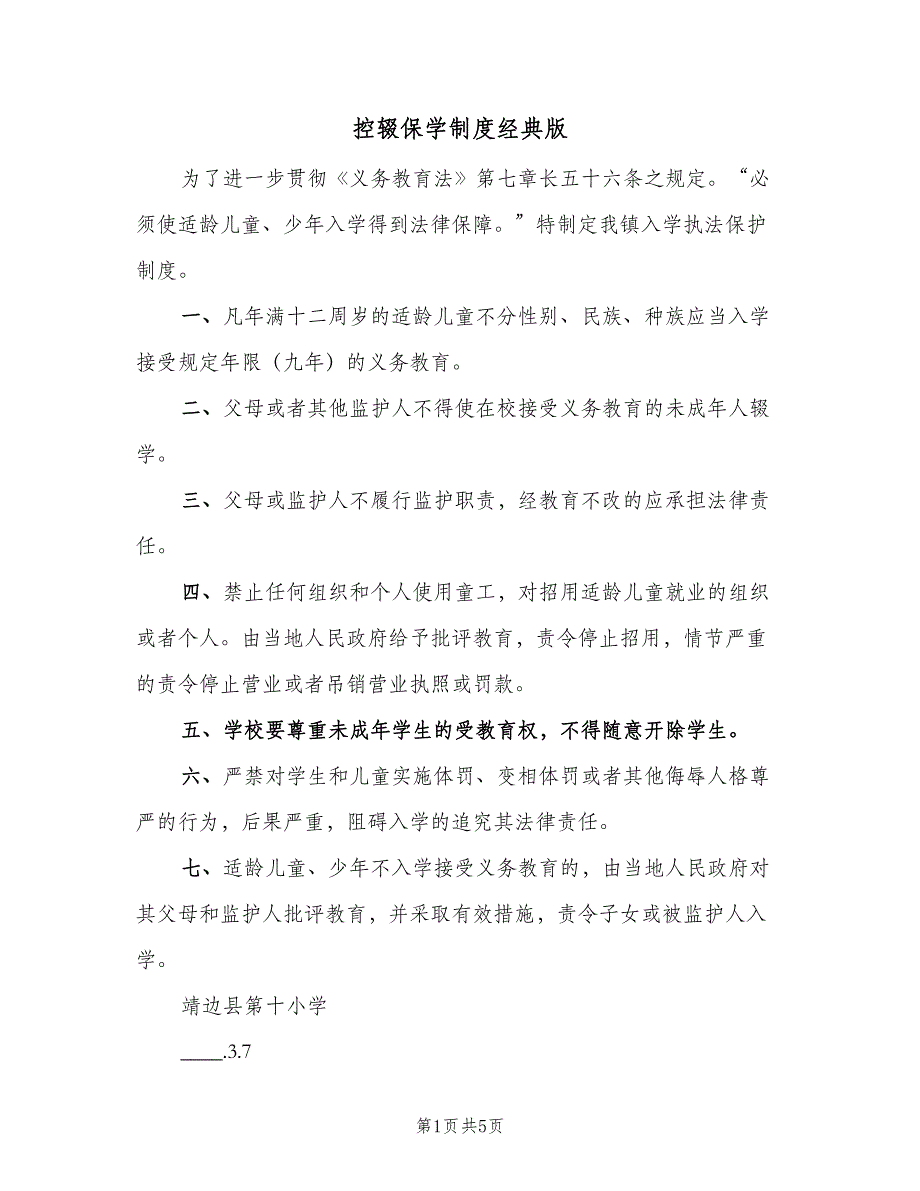 控辍保学制度经典版
为了进一步贯彻《义务教育法》第七章长五十六条之规定。“必
须使适龄儿童、少年入学得到法律保障。”特制定我镇入学执法保护
制度。
一、凡年满十二周岁的适龄儿童不分性别、民族、种族应当入学
接受规定年限（九年）的义务教育。
二、父母或者其他监护人不得使在校接受义务教育的未成年人辍
学。
三、父母或监护人不履行监护职责，经教育不改的应承担法律责
任。
四、禁止任何组织和个人使用童工，对招用适龄儿童就业的组织
或者个人。由当地人民政府给予批评教育，责令停止招用，情节严重
的责令停止营业或者吊销营业执照或罚款。
五、学校要尊重未成年学生的受教育权，不得随意开除学生。
六、严禁对学生和儿童实施体罚、变相体罚或者其他侮辱人格尊
严的行为，后果严重，阻碍入学的追究其法律责任。
七、适龄儿童、少年不入学接受义务教育的，由当地人民政府对
其父母和监护人批评教育，并采取有效措施，责令子女或被监护人入
学。
靖边县第十小学
____.3.7
第1页共5页